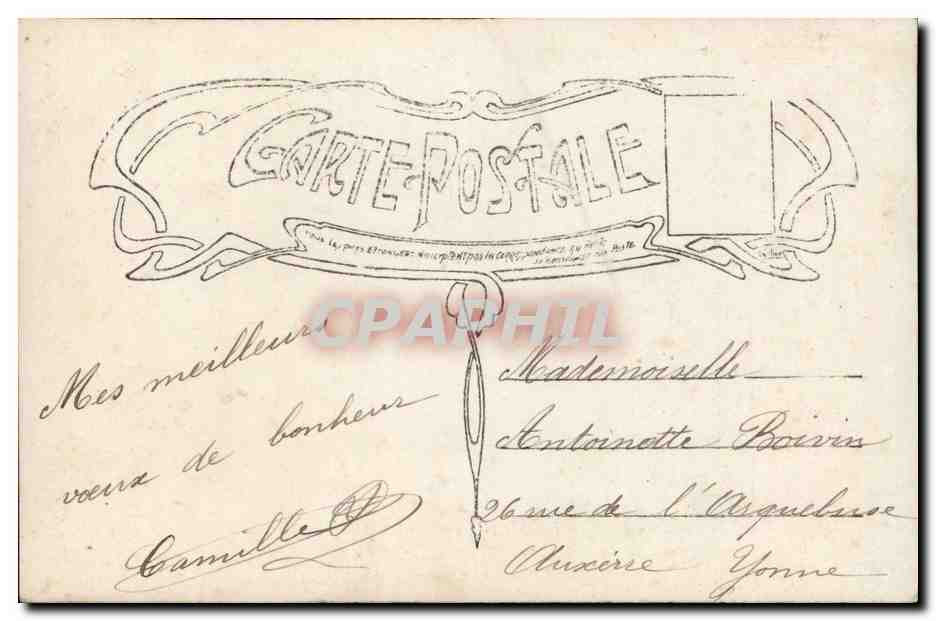 CARTE POSTALE
Tous les pays étrangers n'acceptent pas la correspondance au recto
se renseigner à la Poste
CPAPHIL
Mes meilleurs
vœux de bonheur
Camille
Mademoiselle
Antoinette Boivin
26 rue de l'Arquebuse
Auxerre Yonne